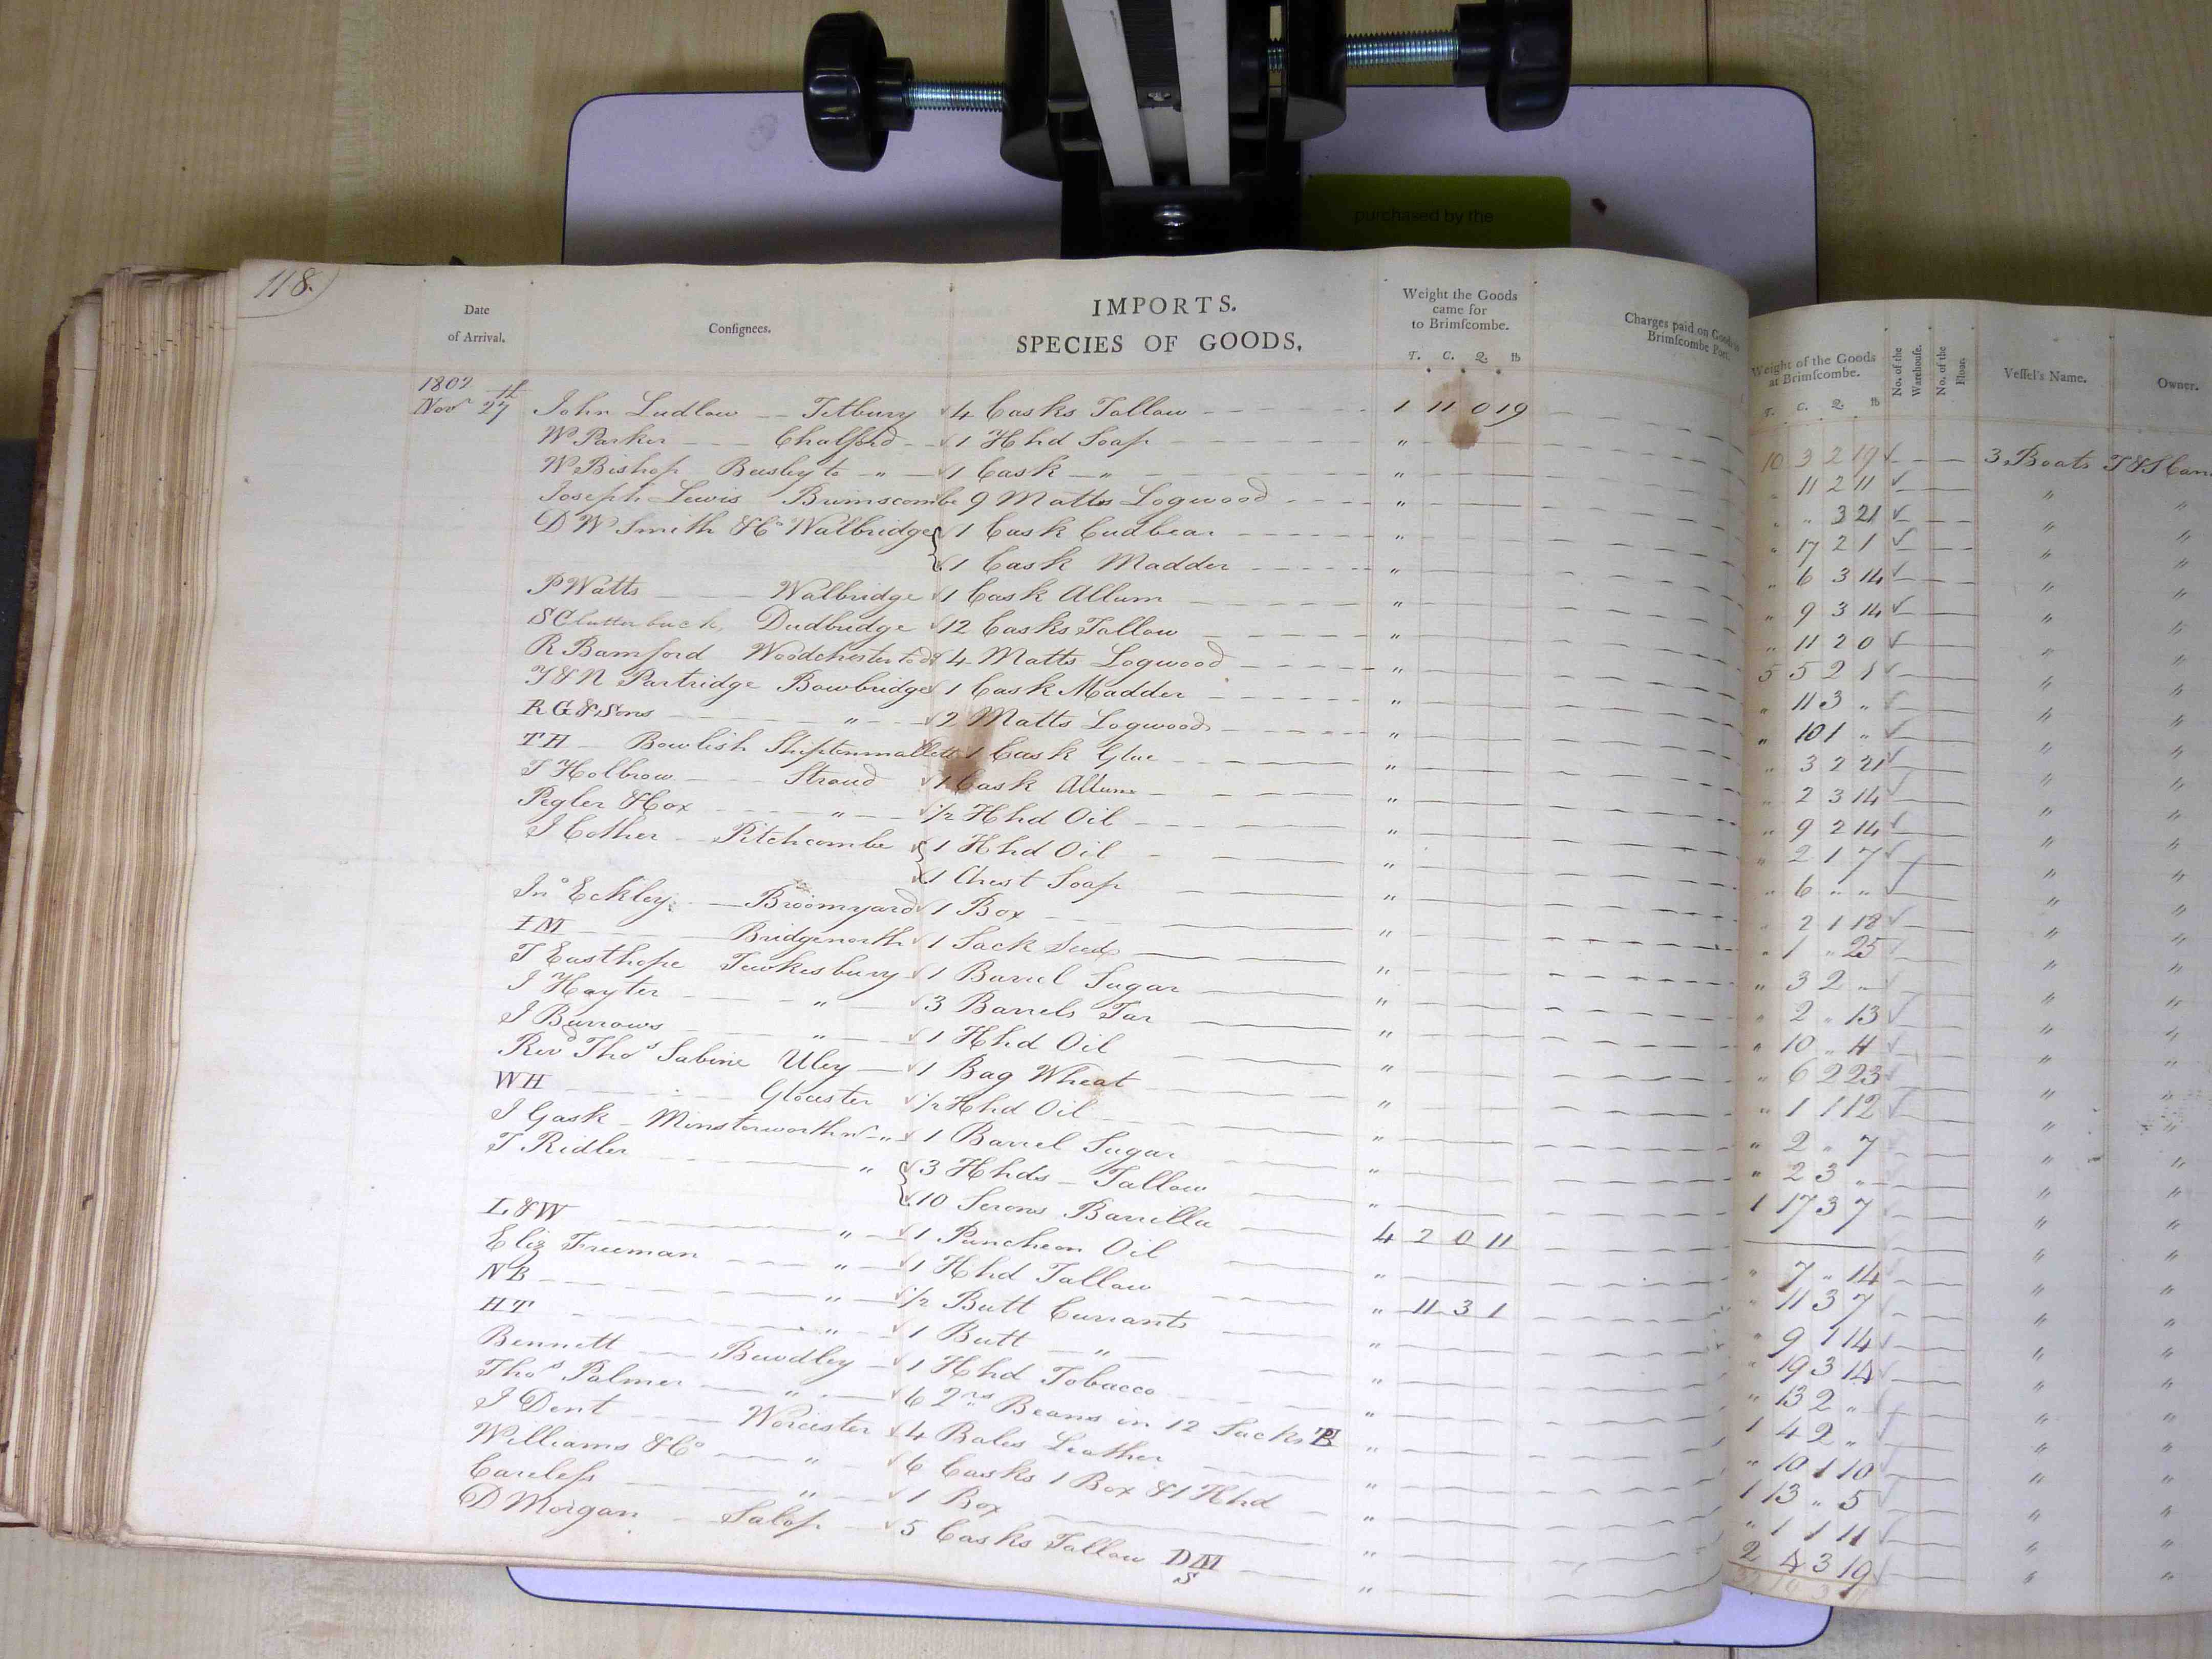 purchased by the
118.
Date of Arrival.
Consignees.
IMPORTS.
SPECIES OF GOODS.
Weight the Goods came for to Brimscombe.
T. C. Q. lb
Charges paid on Goods
Brimscombe Port.
Weight of the Goods at Brimscombe.
T. C. Q. lb
No. of the Warehouse.
No. of the Floor.
Vessel's Name.
Owner.
1802
Nov 27th John Ludlow Tetbury 4 Casks Tallow 1 11 0 19
W Parker Chalford 1 Hhd Soap "
W Bishop Beesley to " 1 Cask " "
Joseph Lewis Brimscombe 9 Matts Logwood "
D W Smith & Co Walbridge 1 Cask Cudbear "
1 Cask Madder "
P Watts Walbridge 1 Cask Allum "
S Clutterbuck Dudbridge 12 Casks Tallow "
R Bamford Woodchester 4 Matts Logwood "
& N Partridge Bowbridge 1 Cask Madder "
RG & Sons " 2 Matts Logwood "
TH Bowlish Sheptenmallett 1 Cask Glue "
T Holbrow Stroud 1 Cask Allum "
Pegler & Cox " 1/2 Hhd Oil "
J Cother Pitchcombe 1 Hhd Oil "
1 Chest Soap "
Jno Eckley Broomyard 1 Box "
IM Bridgenorth 1 Sack Seed "
T Easthope Tewkesbury 1 Barrel Sugar "
J Hayter " 3 Barrels Tar "
J Burrows " 1 Hhd Oil "
Revd Thos Sabine Uley 1 Bag Wheat "
WH Glocester 1/2 Hhd Oil "
J Gask Minsterworth nr " 1 Barrel Sugar "
T Ridler " 3 Hhds Tallow "
10 Serons Barrilla 4 2 0 11
L & W " 1 Puncheon Oil "
Eliz Freeman " 1 Hhd Tallow " 11 3 1
NB " 1/2 Butt Currants "
HT " 1 Butt " "
Bennett Bewdley 1 Hhd Tobacco "
Thos Palmer " 6 Qrs Beans in 12 Sacks "
J Dent Worcester 4 Bales Leather "
Williams & Co " 6 Casks 1 Box & 1 Hhd "
Careless " 1 Box "
D Morgan Salop 5 Casks Tallow DM "
S
10 3 2 19 3 Boats T & S Can
" 11 2 11 " "
" " 3 21 " "
" 17 2 1 " "
" 6 3 14 " "
" 9 3 14 " "
" 11 2 0 " "
5 5 2 1 " "
" 11 3 " " "
" 10 1 " " "
" 3 2 21 " "
" 2 3 14 " "
" 9 2 14 " "
" 2 1 7 " "
" 6 " " " "
" 2 1 18 " "
" 1 " 25 " "
" 3 2 " " "
" 2 " 13 " "
" 10 " 4 " "
" 6 2 23 " "
" 1 1 12 " "
" 2 " 7 " "
" 2 3 " " "
1 17 3 7 " "
" 7 " 14 " "
" 11 3 7 " "
" 9 1 14 " "
" 19 3 14 " "
" 13 2 " " "
1 4 2 " " "
" 10 1 10 " "
1 13 " 5 " "
" 1 1 11 " "
2 4 3 19 " "